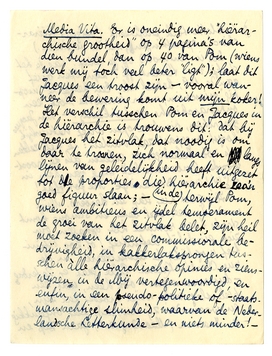 Media Vita. Er is oneindig meer "hiërar-
chische grootheid" op 4 pagina's van
dien bundel, dan op 40 van Pom (wiens
werk mij toch veel beter ligt) laat dit
Jacques een troost zijn – vooral wan-
neer de bewering komt uit mijn koker!
Het verschil tusschen Pom en Jacques in
de hiërarchie is trouwens dit: dat bij
Jacques het zitvlak, dat noodig is om
daar te tronen, zich normaal en langs
lijnen van geleidelijkheid heeft uitgezet
tot de proporties die hiërarchie een
goed figuur slaan; – terwijl Pom,
wiens ambitieus en ijdel temperament
de groei van het zitvlak belet, zijn heil
moet zoeken in een commissoriale be-
drijvigheid, in kakkerlaksprongen tus-
schen alle hiërarchische opinies en ziens-
wijzen, in de erbij vertegenwoordigd, en
enfin, in een pseudo-politieke of -staats-
manachtige slimheid, waarvan de Neder-
landsche Letterkunde – en niets minder! –